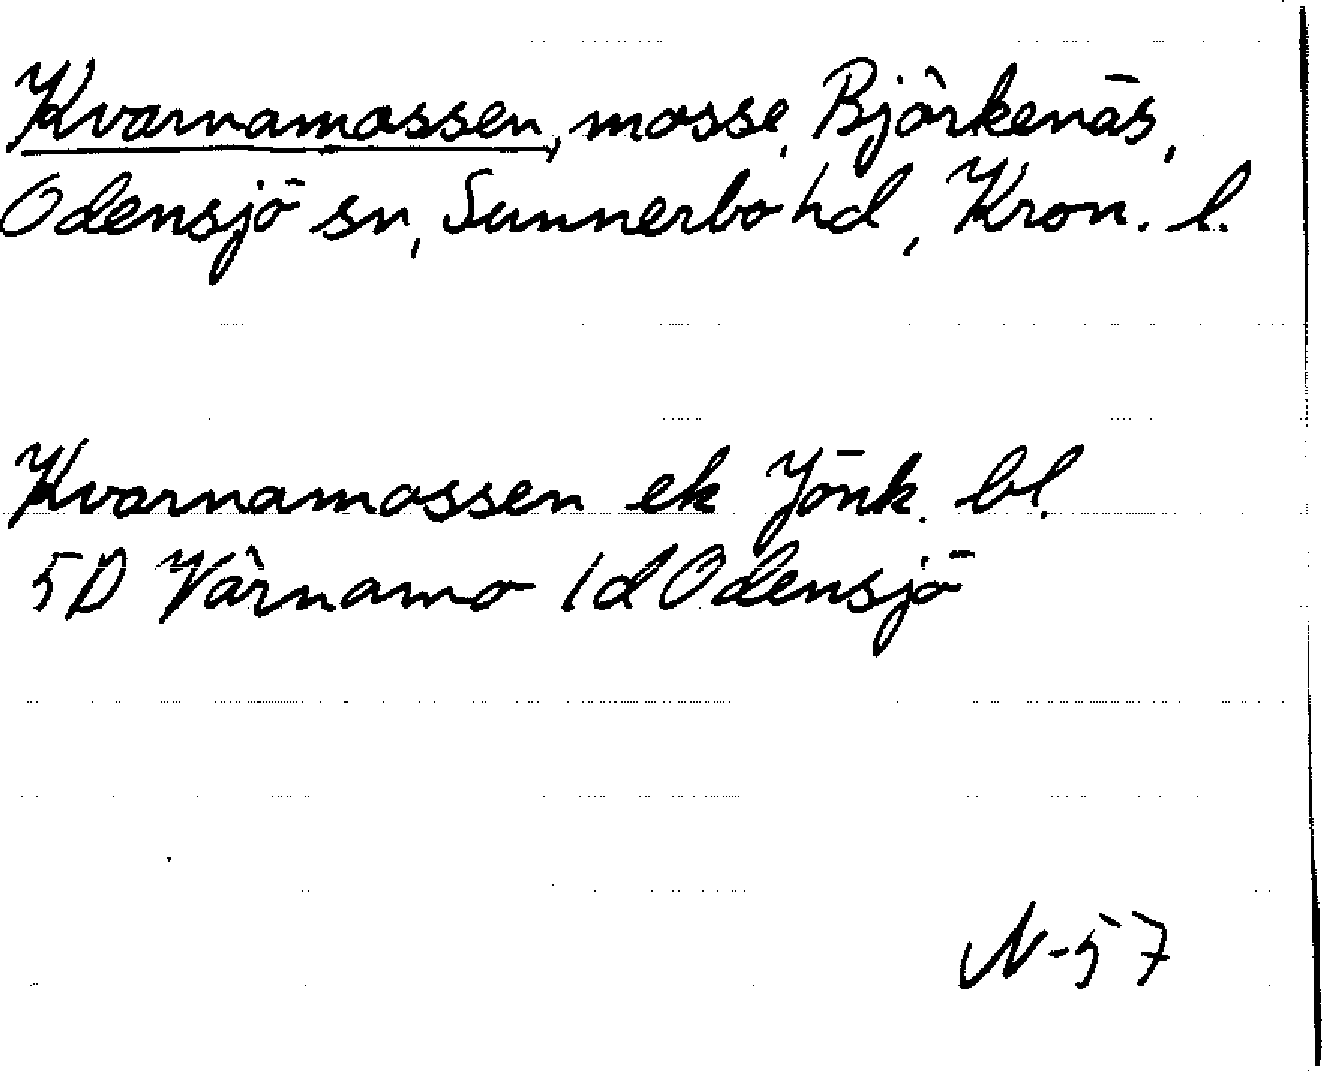 Kvarnamossen, mosse, Björkenäs,
Odensjö sn, Sunnerbo hd, Kron. l.
Kvarnamossen ek Jönk. bl.
5D Värnamo 1d Odensjö
N-57